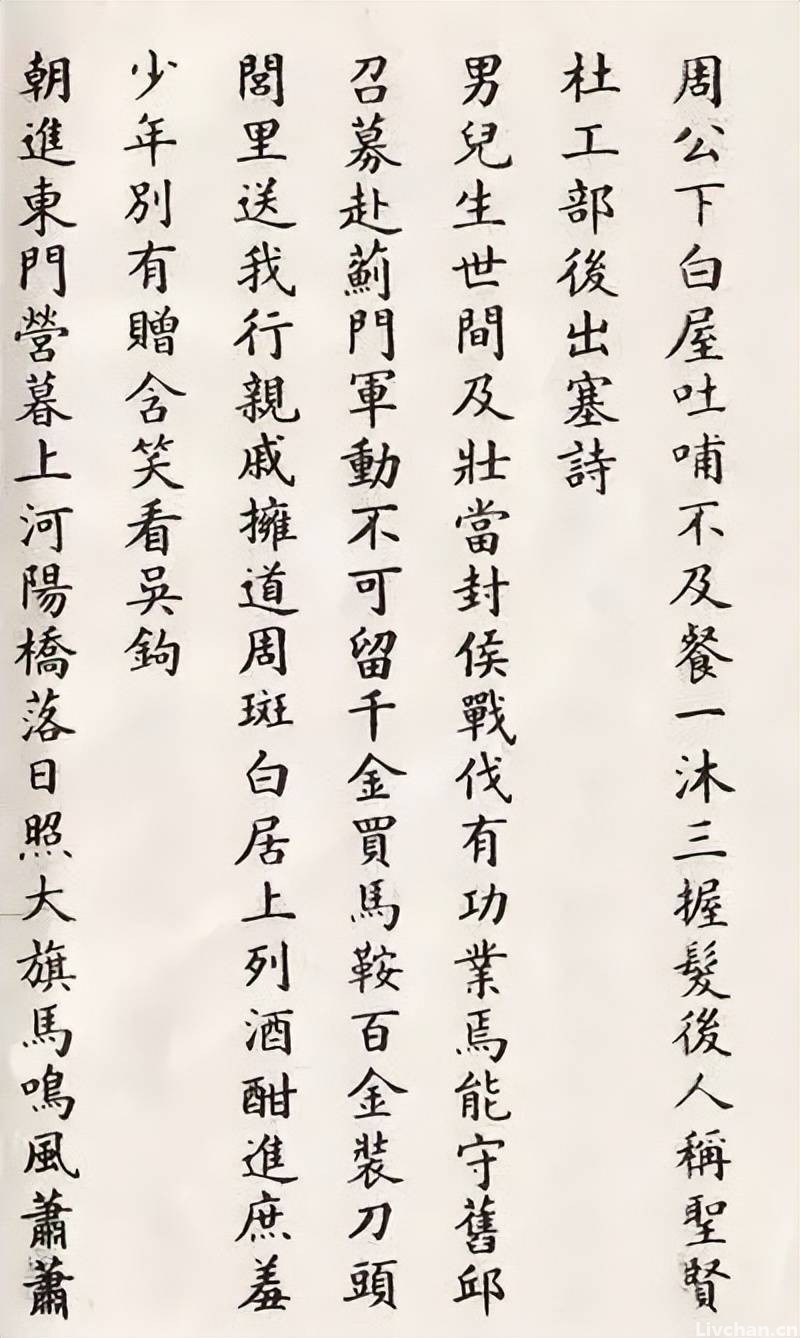 周公下白屋吐哺不及餐一沐三握髮後人稱聖賢
杜工部後出塞詩
男兒生世間及壯當封侯戰伐有功業焉能守舊邱
召募赴薊門軍動不可留千金買馬鞍百金裝刀頭
閭里送我行親戚擁道周斑白居上列酒酣進庶羞
少年別有贈含笑看吳鉤
朝進東門營暮上河陽橋落日照大旗馬鳴風蕭蕭
Livchan.cn